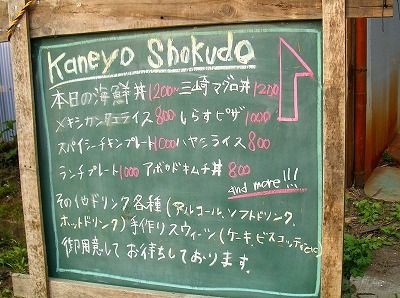 Kaneyo Shokudo
本日の海鮮丼1200~ 三崎マグロ丼1200
メキシカンタコライス800 しらすピザ1000
スパイシーチキンプレート1000 ハヤシライス800
ランチプレート1000 アボカドキムチ丼800
and more!!!
その他ドリンク各種(アルコール、ソフトドリンク、
ホットドリンク)手作りスウィーツ(ケーキ、ビスコッティetc)
御用意して お待ちしております。